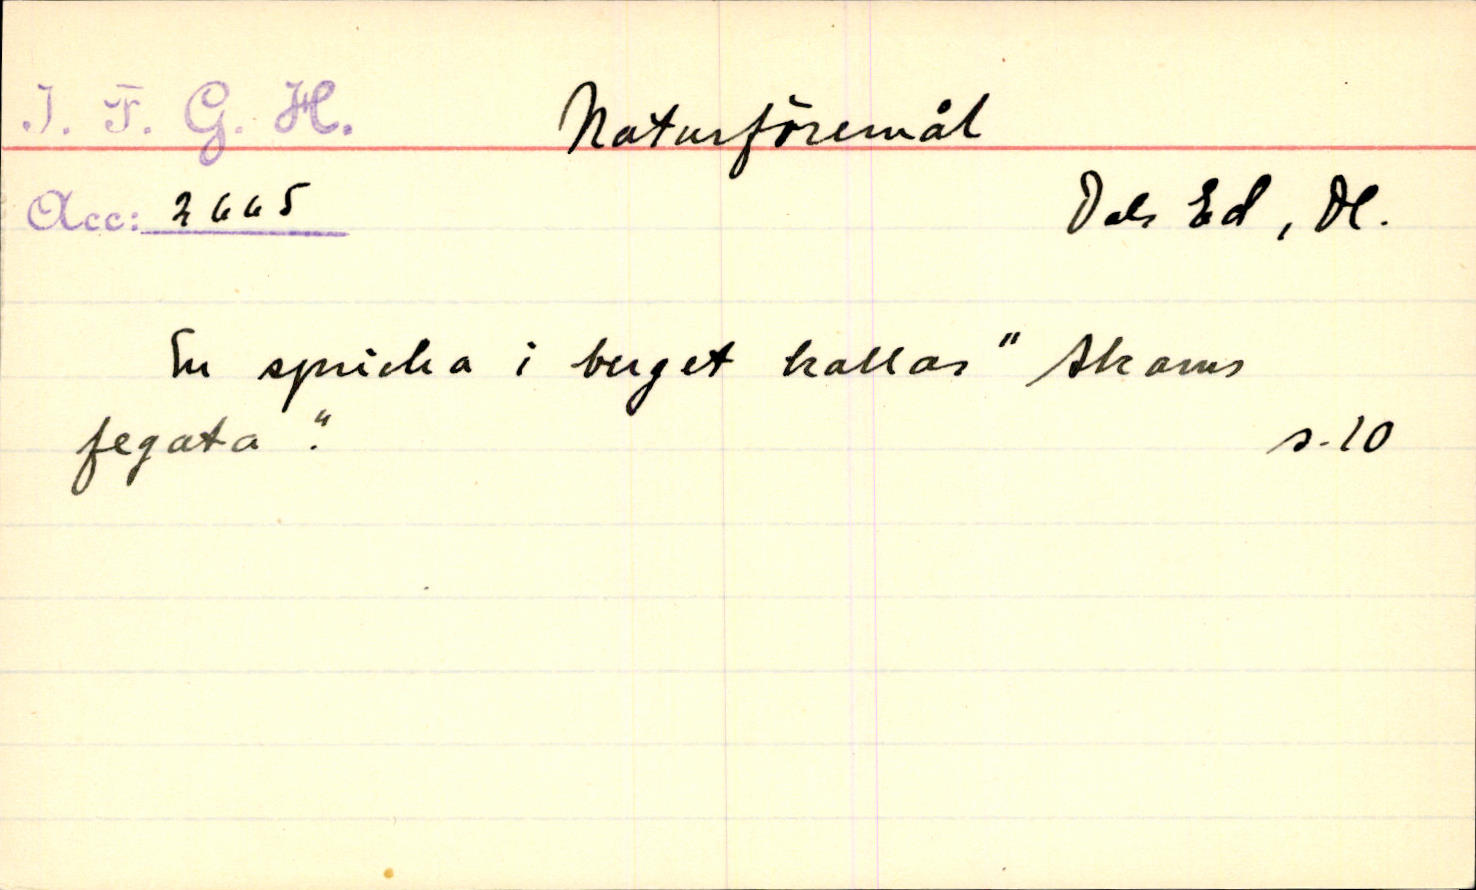 I. F. G. H.
Naturföremål
Acc: 2665
Dals Ed, Dl.
En spricka i berget kallas "Skams
fegata".
s. 10